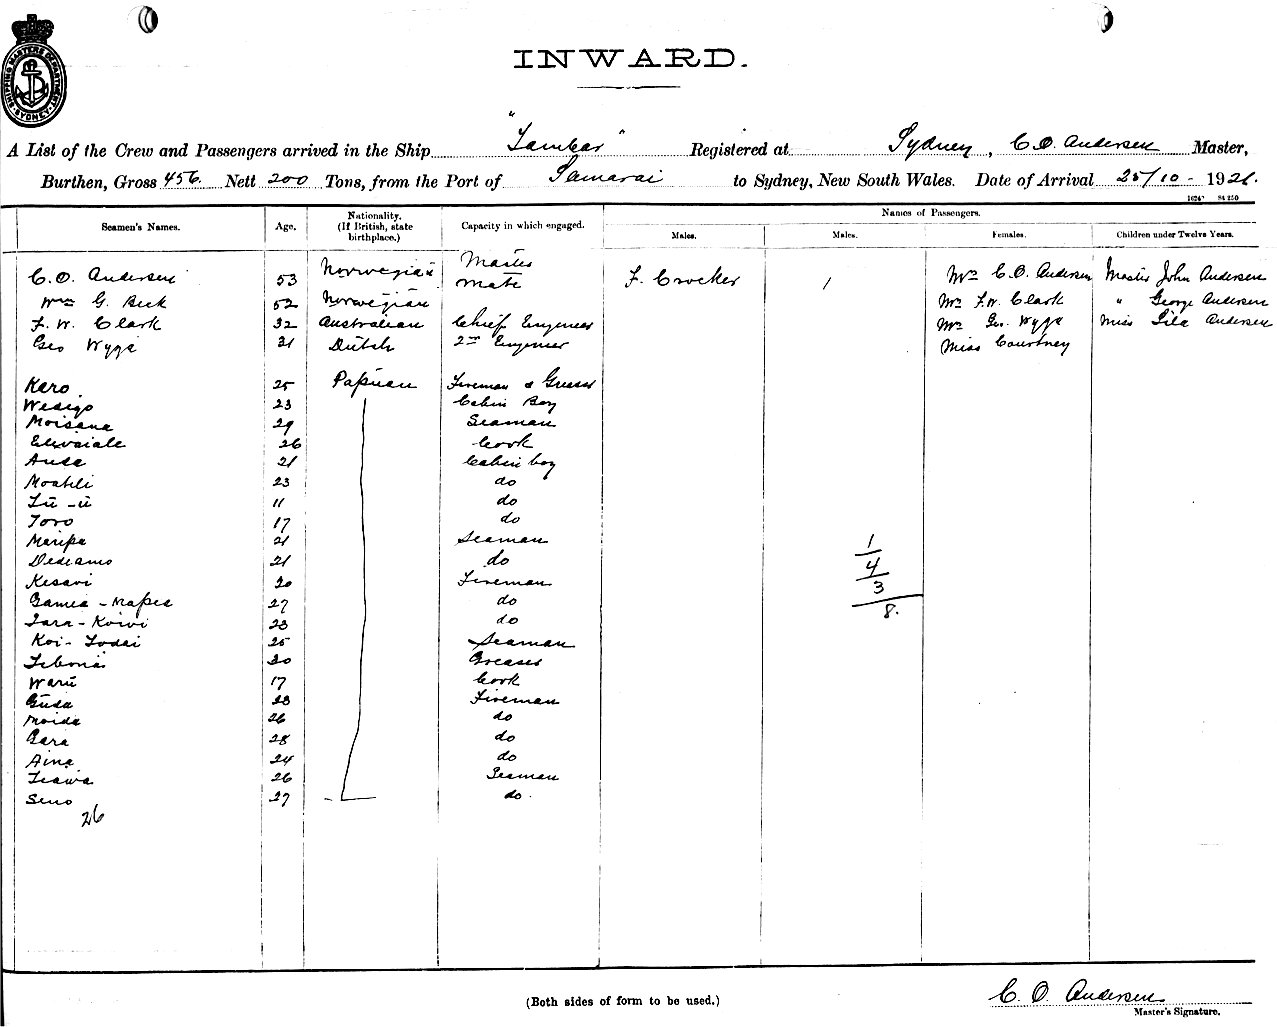 SHIPPING MASTERS DEPARTMENT SYDNEY
INWARD.
A List of the Crew and Passengers arrived in the Ship "Tambar" Registered at Sydney, C. O. Andersen Master,
Burthen, Gross 456. Nett 200 Tons, from the Port of Samarai to Sydney, New South Wales. Date of Arrival 25/10 - 1921.
Seamen's Names. Age. Nationality. (If British, state birthplace.) Capacity in which engaged. Names of Passengers.
Males. Males. Females. Children under Twelve Years.
C. O. Andersen 53 Norwegian Master F. Crocker 1 Mrs C. O. Andersen Master John Andersen
Wm G. Beck 52 Norwegian Mate Mrs F. W. Clark " George Andersen
F. W. Clark 32 Australian Chief Engineer Mrs Geo. Wyga Miss Andersen
Geo Wyga 31 Dutch 2nd Engineer Miss Courtney
Karo. 25 Papuan Fireman & Greaser
Wedigo 23 Cabin Boy
Moisana 29 Seaman
26 Cook
Auda 21 Cabin boy
Moahili 23 do
11 do
Toro 17 do
Maripa 21 Seaman
Dedeamo 21 do
Kesavi 20 Fireman
Gamea - Mapes 27 do
- Koivi 23 do
Koi - 25 Seaman
20 Greaser
Waru 17 Cook
Guda 23 Fireman
Moida 26 do
Gara 28 do
Aina 24 do
26 Seaman
Seno 27 do.
26
1
4
3
8.
(Both sides of form to be used.)
C. O. Andersen
Master's Signature.